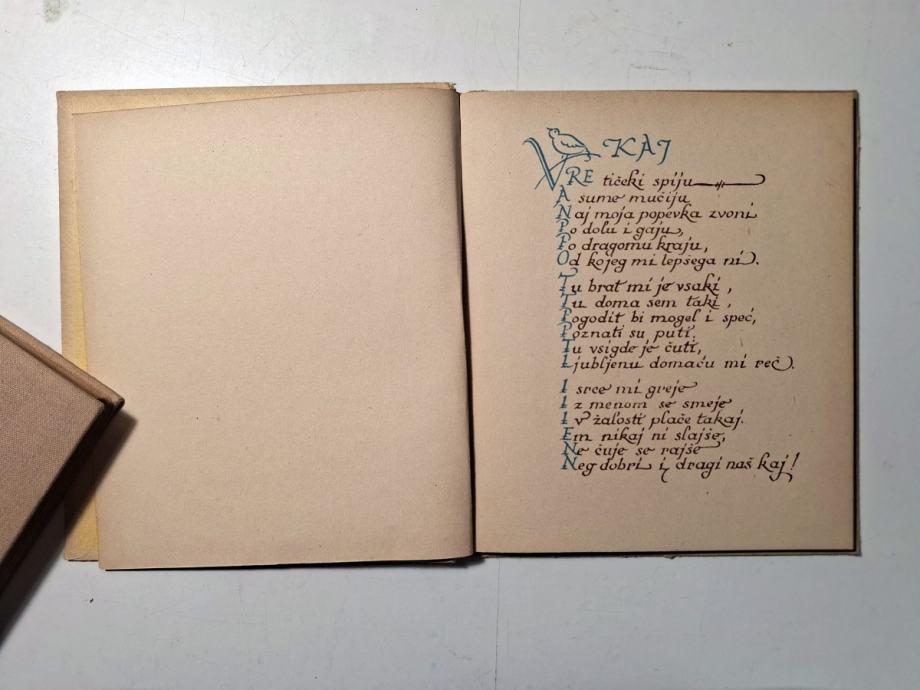 KAJ
VRE tičeki spiju
A sume mučiju
Naj moja popevka zvoni
Po dolu i gaju,
Po dragomu kraju,
Od kojeg mi lepšega ni.
Tu brat mi je vsaki,
Tu doma sem taki,
Pogodit bi mogel i speć,
Poznati su puti,
Tu vsigde je čuti,
Ljubljenu domaću mi reč.
I srce mi greje
I z menom se smeje
I v žalosti plače takaj.
Em nikaj ni slajše,
Ne čuje se rajše
Neg dobri i dragi naš kaj!